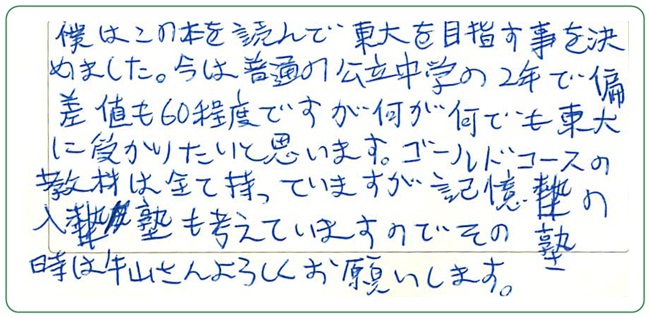 僕はこの本を読んで東大を目指す事を決
めました。今は普通の公立中学の2年で偏
差値も60程度ですが何が何でも東大
に受かりたいと思います。ゴールドコースの
教材は全て持っていますが記憶塾の
入塾も考えていますのでその
時は牛山さんよろしくお願いします。